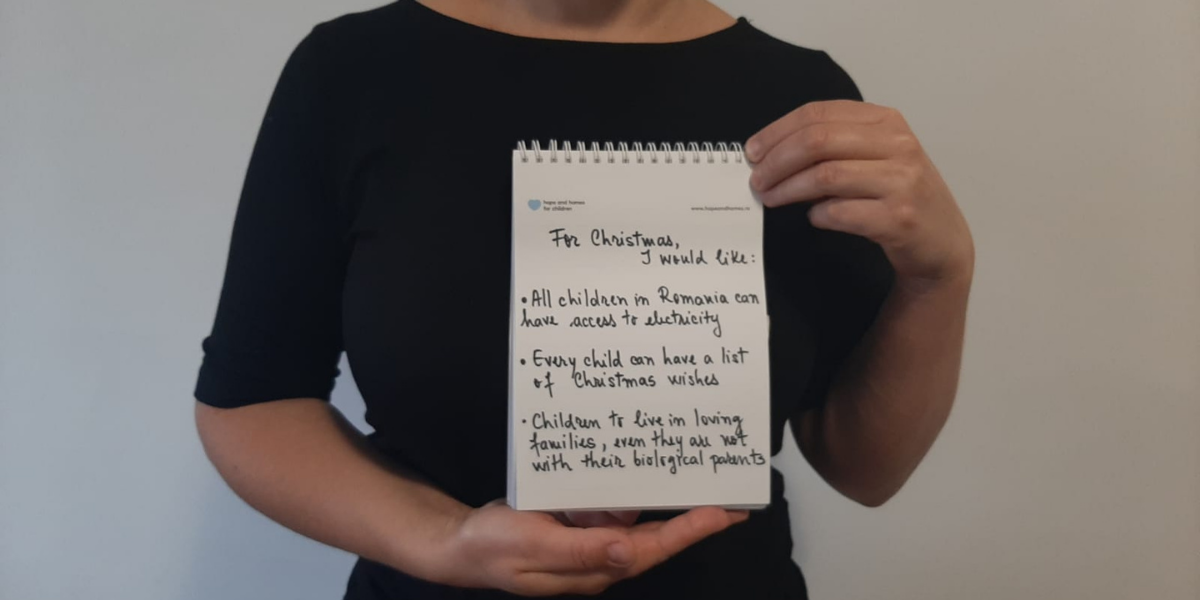 hope and homes
for children
www.hopeandhomes.ro
For Christmas,
I would like:
• All children in Romania can
have access to electricity
• Every child can have a list
of Christmas wishes
• Children to live in loving
families, even they are not
with their biological parents